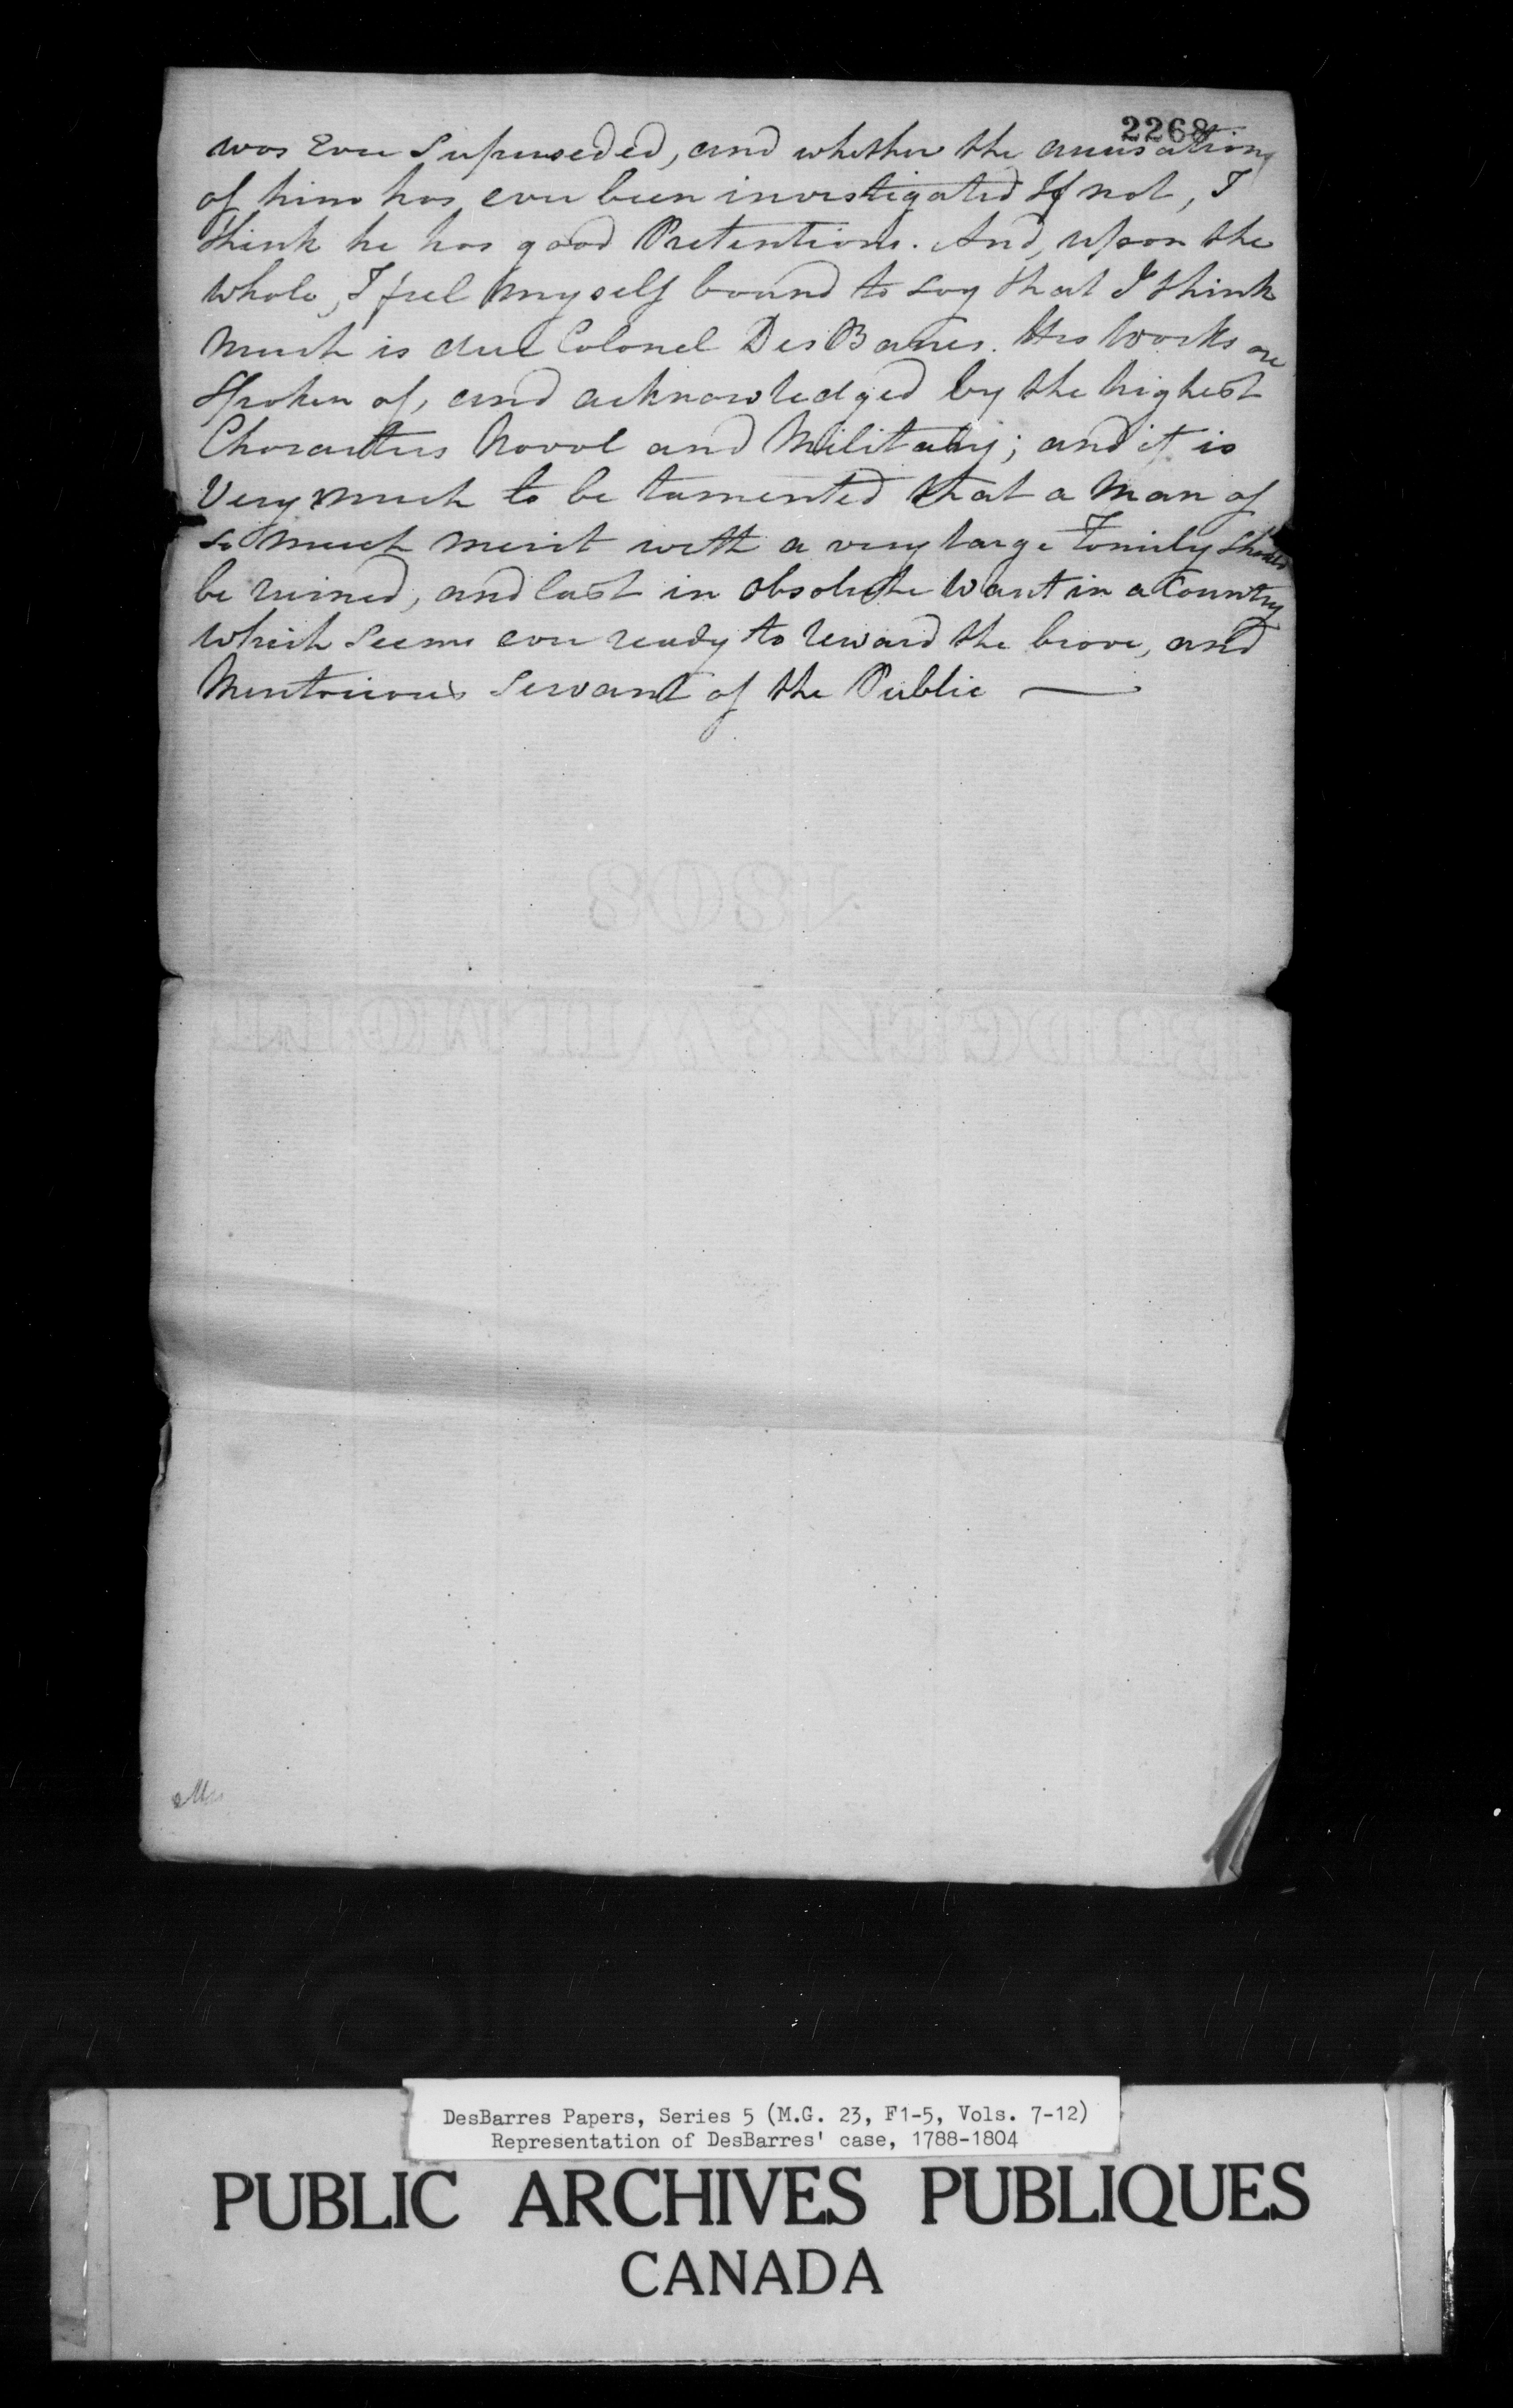 2268
was Ever Superseded, and whether the accusations
of him has ever been investigated If not, I
think he has good Pretentions. And, upon the
whole, I feel myself bound to say that I think
Much is due Colonel DesBarres. His Works are
Spoken of, and acknowledged by the highest
Characters Naval and Military; and it is
Very much to be lamented that a Man of
so much merit with a very large Family should
be ruined, and last in absolute Want in a Country
which seems ever ready to reward the brave, and
Meritorious Servant of the Public —
1803
DesBarres Papers, Series 5 (M.G. 23, F1-5, Vols. 7-12)
Representation of DesBarres' case, 1788-1804
PUBLIC ARCHIVES PUBLIQUES
CANADA